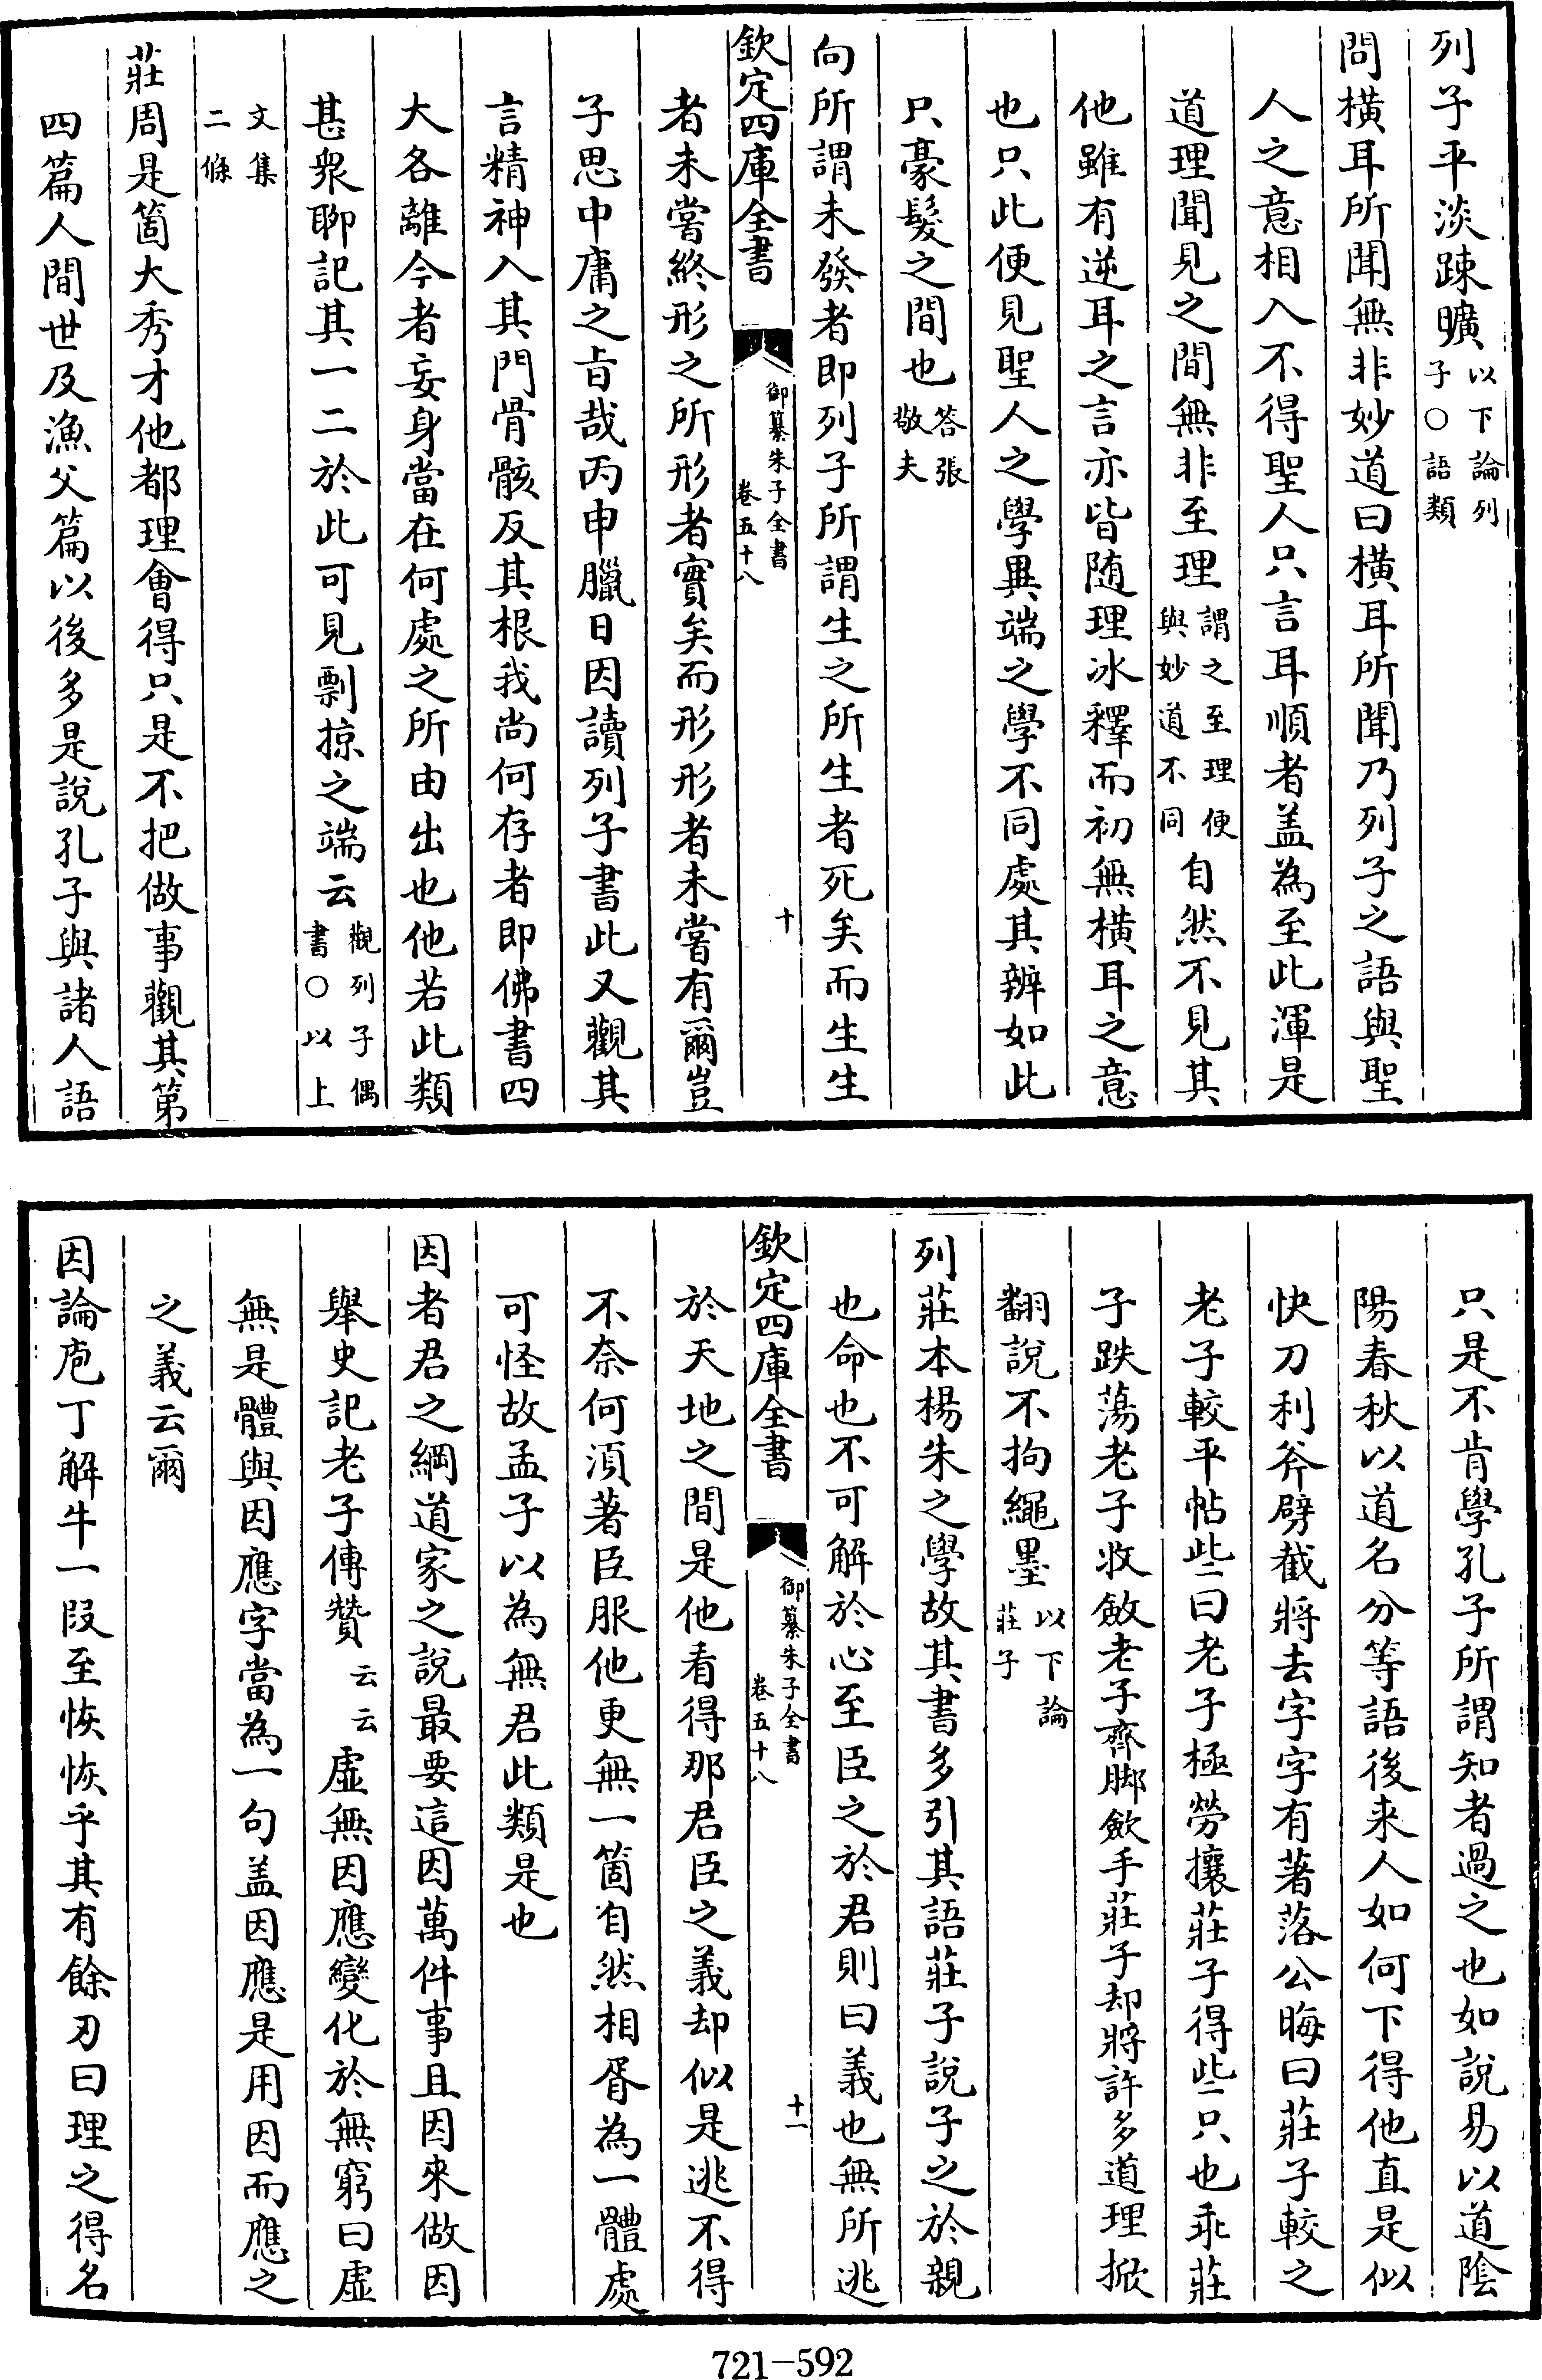 列子平淡踈曠以下論列子○語類
問橫耳所聞無非妙道曰橫耳所聞乃列子之語與聖
人之意相入不得聖人只言耳順者盖為至此渾是
道理聞見之間無非至理謂之至理便與妙道不同自然不見其
他雖有逆耳之言亦皆随理氷釋而初無橫耳之意
也只此便見聖人之學異端之學不同處其辨如此
只豪髮之間也答張敬夫
向所謂未發者即列子所謂生之所生者死矣而生生
欽定四庫全書
御纂朱子全書
卷五十八
十
者未嘗終形之所形者實矣而形形者未嘗有爾豈
子思中庸之㫖哉丙申臘日因讀列子書此又觀其
言精神入其門骨骸反其根我尚何存者即佛書四
大各離今者妄身當在何處之所由出也他若此類
甚衆聊記其一二於此可見剽掠之端云觀列子偶書○以上
文集二條
莊周是箇大秀才他都理會得只是不把做事觀其第
四篇人間世及漁父篇以後多是說孔子與諸人語
只是不肯學孔子所謂知者過之也如說易以道陰
陽春秋以道名分等語後来人如何下得他直是似
快刀利斧劈截將去字字有著落公晦曰莊子較之
老子較平帖些曰老子極勞攘莊子得些只也乖莊
子跌蕩老子收斂老子齊脚斂手莊子却將許多道理掀
翻說不拘繩墨以下論莊子
列莊本楊朱之學故其書多引其語莊子說子之於親
也命也不可解於心至臣之於君則曰義也無所逃
欽定四庫全書
御纂朱子全書
卷五十八
十一
於天地之間是他看得那君臣之義却似是逃不得
不奈何須著臣服他更無一箇自然相胥為一體處
可怪故孟子以為無君此類是也
因者君之綱道家之說最要這因萬件事且因來做因
舉史記老子傳贊云云虛無因應變化於無窮曰虛
無是體與因應字當為一句盖因應是用因而應之
之義云爾
因論庖丁解牛一段至恢恢乎其有餘刃曰理之得名
721—592